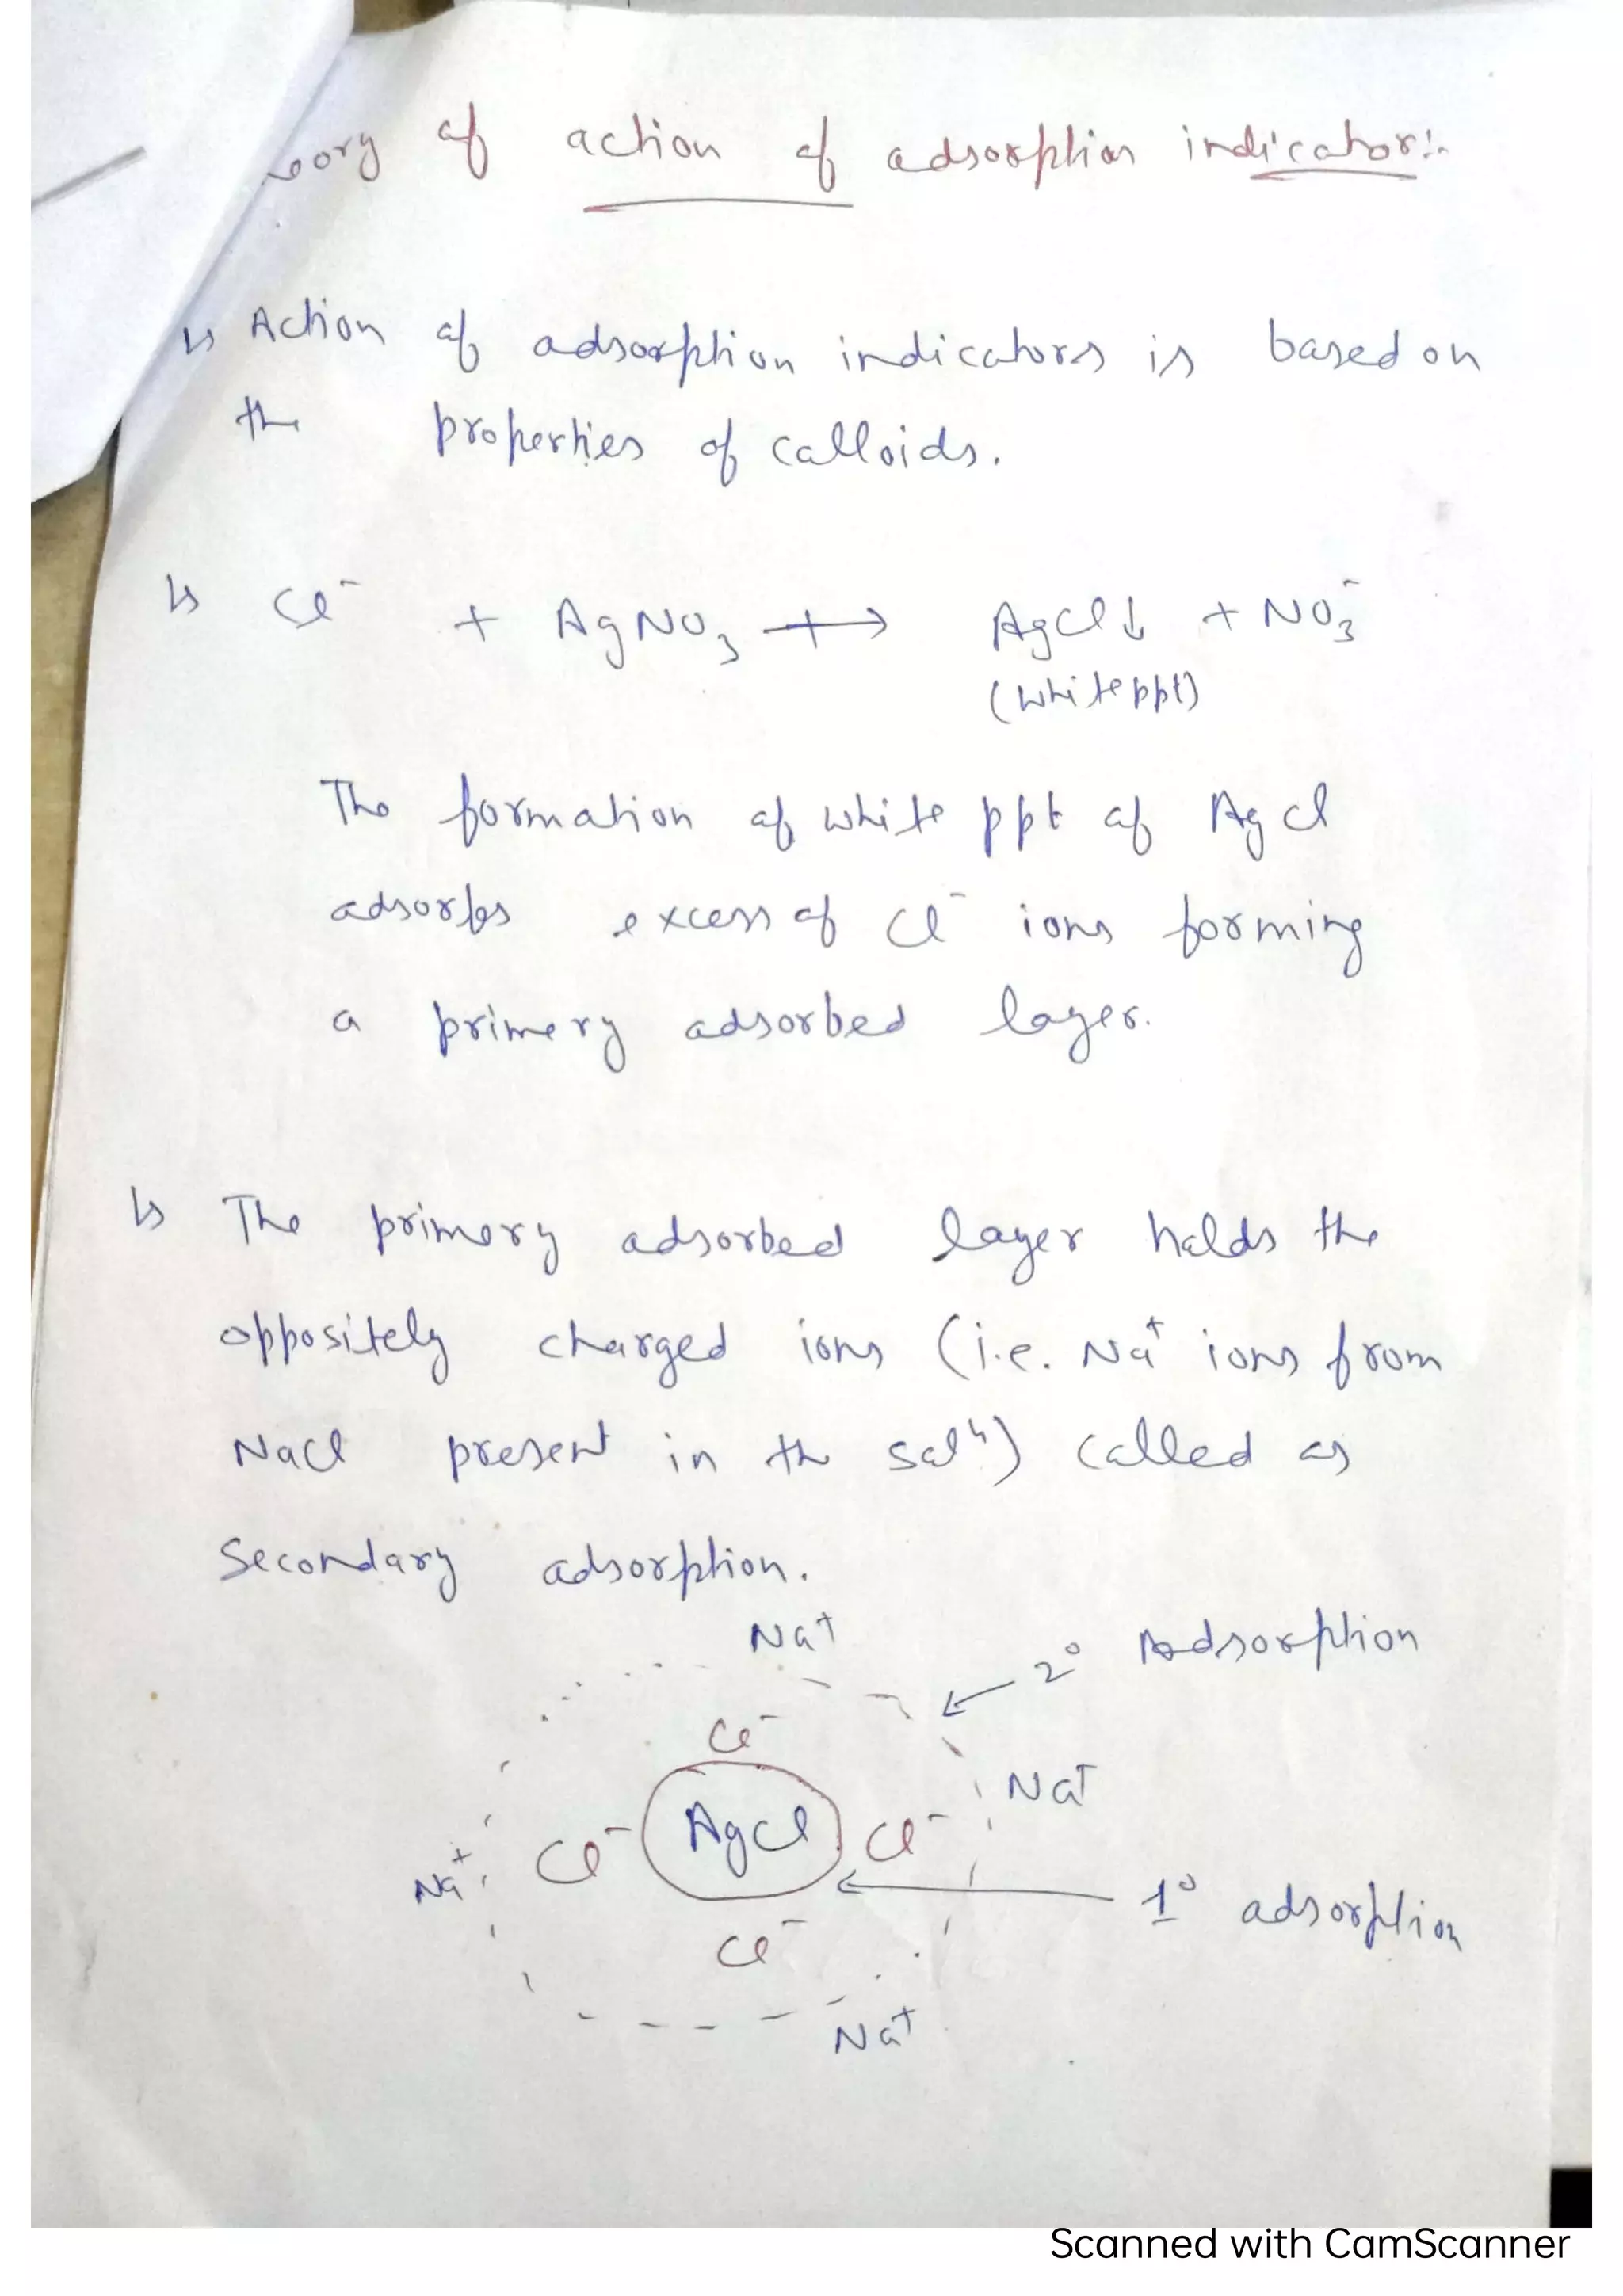 eory of action of adsorption indicator:-
↳ Action of adsorption indicators is based on
the properties of calloids.
↳ Cl⁻ + AgNO₃ → AgCl↓ + NO₃⁻
(white ppt)
The formation of white ppt of AgCl
adsorbs excess of Cl⁻ ions forming
a primery adsorbed layer.
↳ The primary adsorbed layer holds the
oppositely charged ions (i.e. Na⁺ ions from
NaCl present in the solⁿ) called as
Secondary adsorption.
Na⁺
2° Adsorption
Cl⁻
Na⁺
Na⁺ Cl⁻ AgCl Cl⁻
1° adsorption
Cl⁻
Na⁺
Scanned with CamScanner